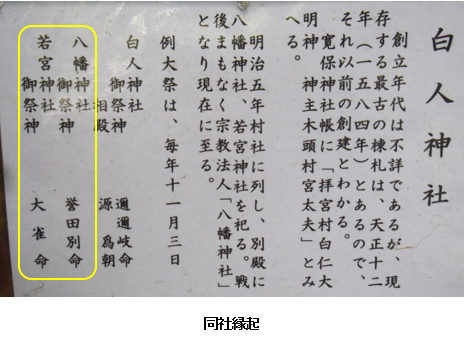 白人神社
創立年代は不詳であるが、現
存する最古の棟札は、天正十二
年（一五八四年）とあるので、
それ以前の創建とわかる。
寛保神社帳に「拝宮村白仁大
明神、神主木頭村宮太夫」とみ
へる。
明治五年村社に列し、別殿に
八幡神社、若宮神社を祀る。戦
後まもなく宗教法人「八幡神社」
となり現在に至る。
例大祭は、毎年十一月三日
白人神社
御祭神 邇邇岐命
相殿 源為朝
八幡神社
御祭神 誉田別命
若宮神社
御祭神 大雀命
同社縁起